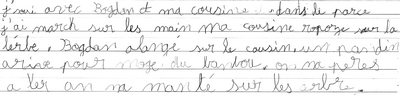 j'sui avec Bogdan et ma cousine dans le parce
j'ai march sur les main ma cousine ropoze sur la
lérbe. Bogdan alangé sur le cousin, un pandin
arive pour moge du banbou. on na peres
a ler an na monté sur les erbre.